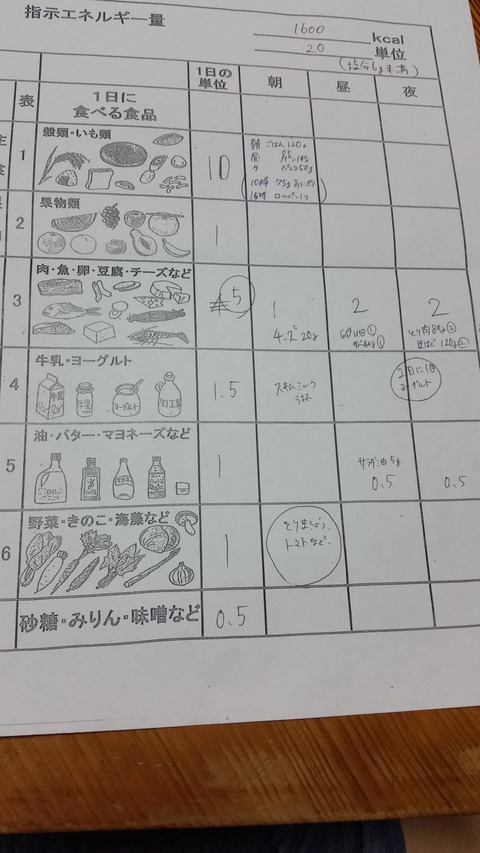 指示エネルギー量
1600 kcal
20 単位
(塩分6g未満)
表
1日に
食べる食品
1日の
単位
朝
昼
夜
1
穀類・いも類
10
朝 ごはん120g
昼
夕
10時 75gおにぎり
15時
2
果物類
1
3
肉・魚・卵・豆腐・チーズなど
5
1
チーズ20g
2
2
とり肉80g②
120g
4
牛乳・ヨーグルト
牛乳
ヨーグルト
1.5
スキムミルク
3杯
2日に1回
ヨーグルト
5
油・バター・マヨネーズなど
1
サラダ油5g
0.5
0.5
6
野菜・きのこ・海藻など
1
トマトなど
砂糖・みりん・味噌など
0.5